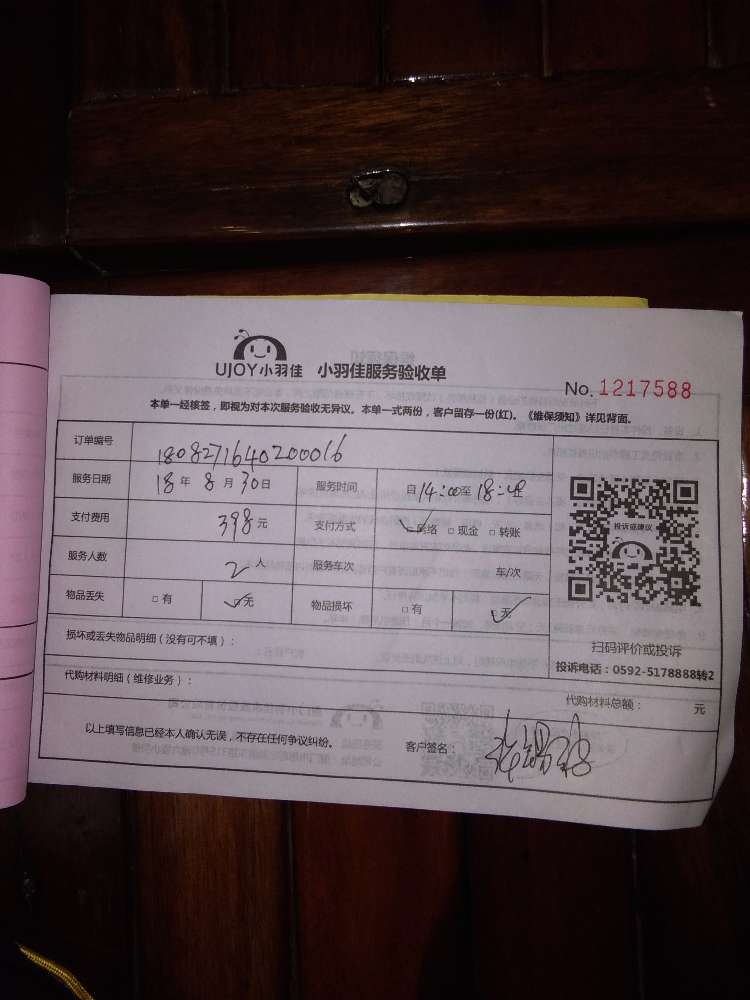 UJOY小羽佳 小羽佳服务验收单
No. 1217588
本单一经核签，即视为对本次服务验收无异议。本单一式两份，客户留存一份(红)。《维保须知》详见背面。
订单编号 1808271640200016
服务日期 18年8月30日 服务时间 自14:00至18:00止
支付费用 398元 支付方式 网络 □现金 □转账
服务人数 2人 服务车次 车/次
物品丢失 □有 ☑无 物品损坏 □有 ☑无
投诉或建议
扫码评价或投诉
投诉电话：0592-5178888转2
损坏或丢失物品明细（没有可不填）：
代购材料明细（维修业务）： 代购材料总额： 元
以上填写信息已经本人确认无误，不存在任何争议纠纷。 客户签名：